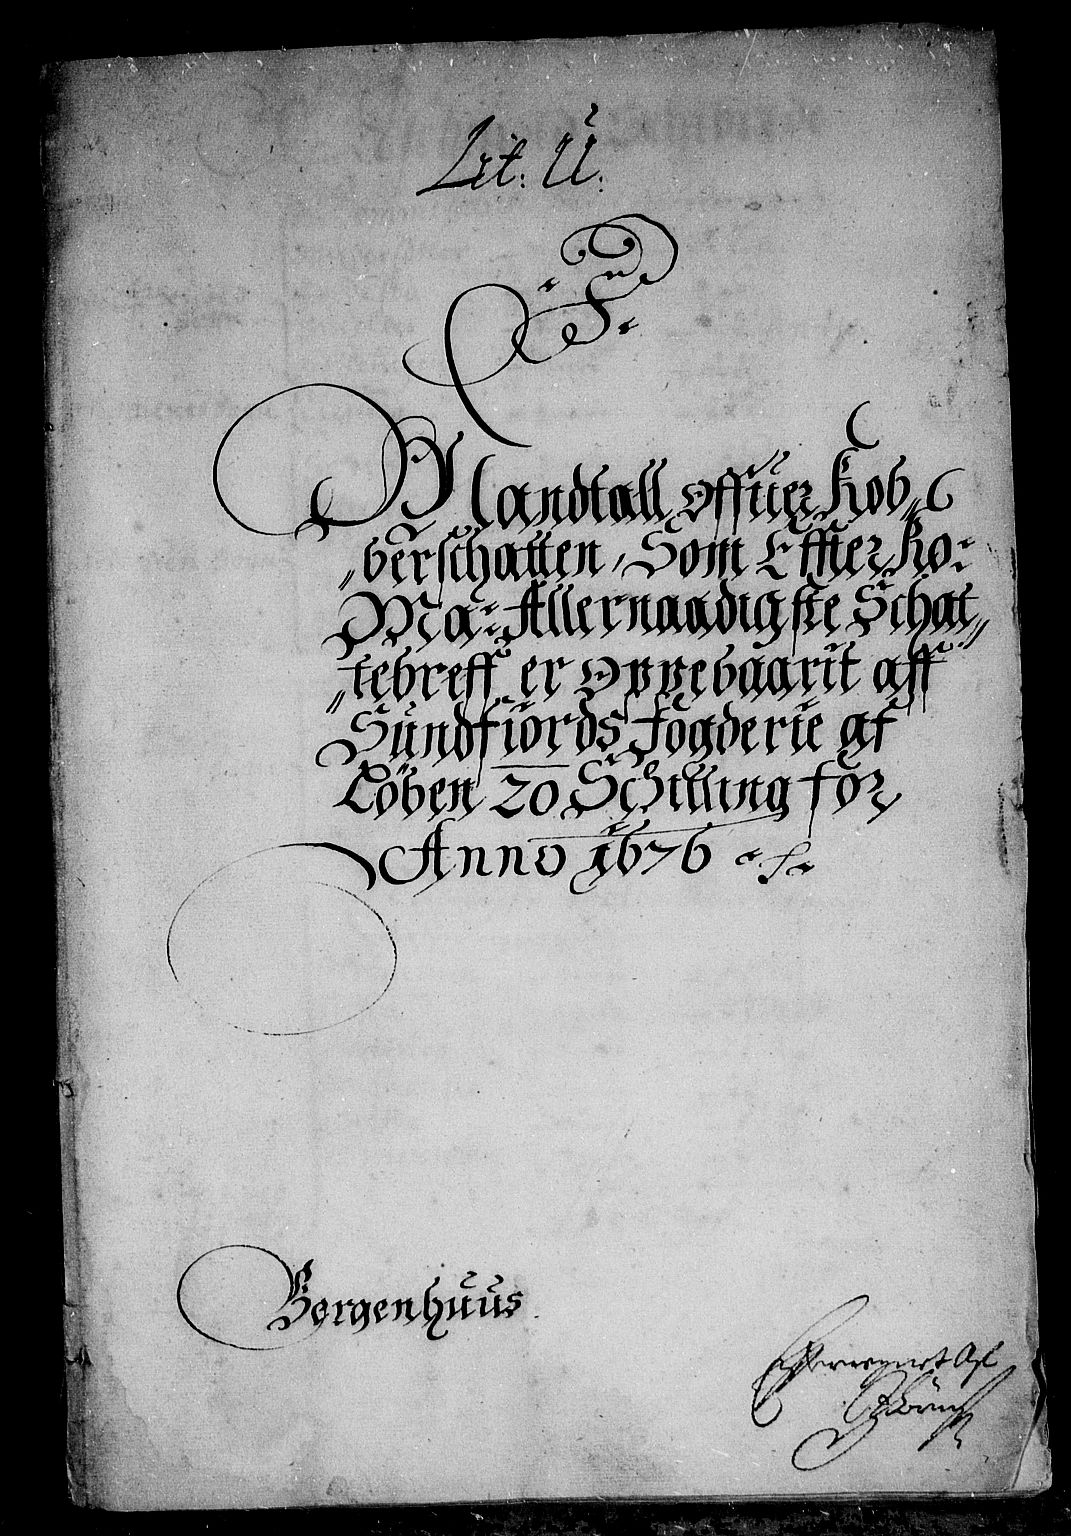 Lit: Ü.
F
Mandtall offuer Kob„
„berschatten, Som Effter Ko:
Ma: Allernaadigste Schat„
„tebreff er Oppebaarit aff
Sundfiords Fogderie af
Löben 20 Schilling for
Anno 1676
Bergenhuus.
Efterregnet Af